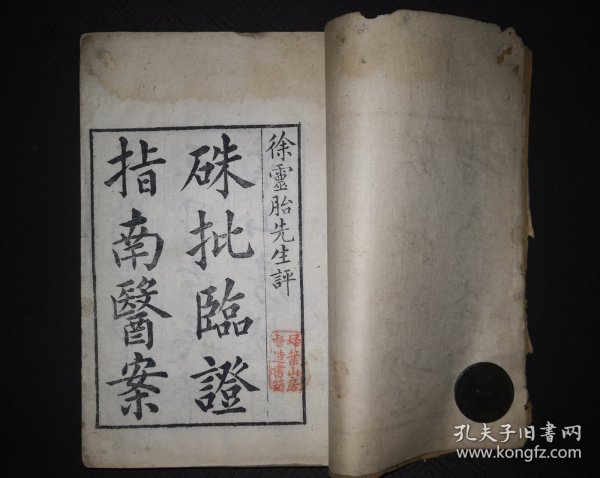 徐靈胎先生評
硃批臨證
指南醫案
掃葉山房
督造書籍
孔夫子旧書网
www.kongfz.com